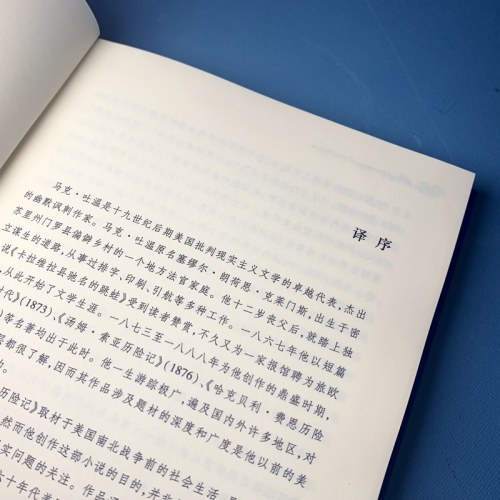 译序
马克·吐温是十九世纪后期美国批判现实主义文学的卓越代表，杰出
的幽默讽刺作家。马克·吐温原名塞缪尔·朗荷恩·克莱门斯，出生于密
苏里州门罗县偏僻乡村的一个地方法官家庭。他十二岁丧父后，就踏上独
立谋生的道路，从事过排字、印刷、引航等多种工作。一八六七年他以短篇
说《卡拉维拉县驰名的跳蛙》受到读者赞赏，不久又为一家报馆聘为旅欧
，从此开始了文学生涯。一八七三至一八八八年为他创作的鼎盛时期，
时代》(1873)、《汤姆·索亚历险记》(1876)、《哈克贝利·费恩历险
)等名著均出于此时。他一生游踪极广，遍及国内外许多地区，对
都很了解，因而其作品涉及题材的深度和广度是他以前的美
历险记》取材于美国南北战争前的社会生活
然而他创作这部小说的目的，并非
实问题的关注。作品
六十年代